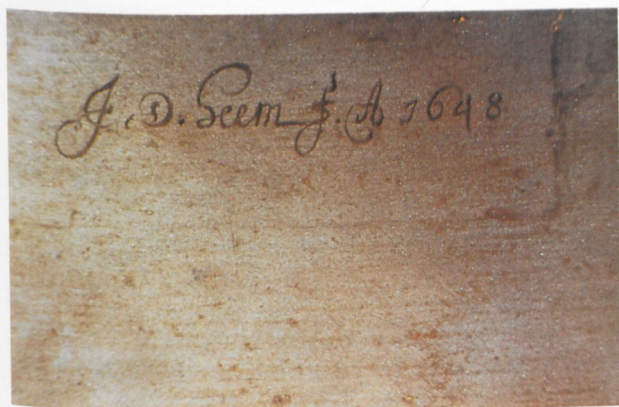 J. D. heem f. A 1648